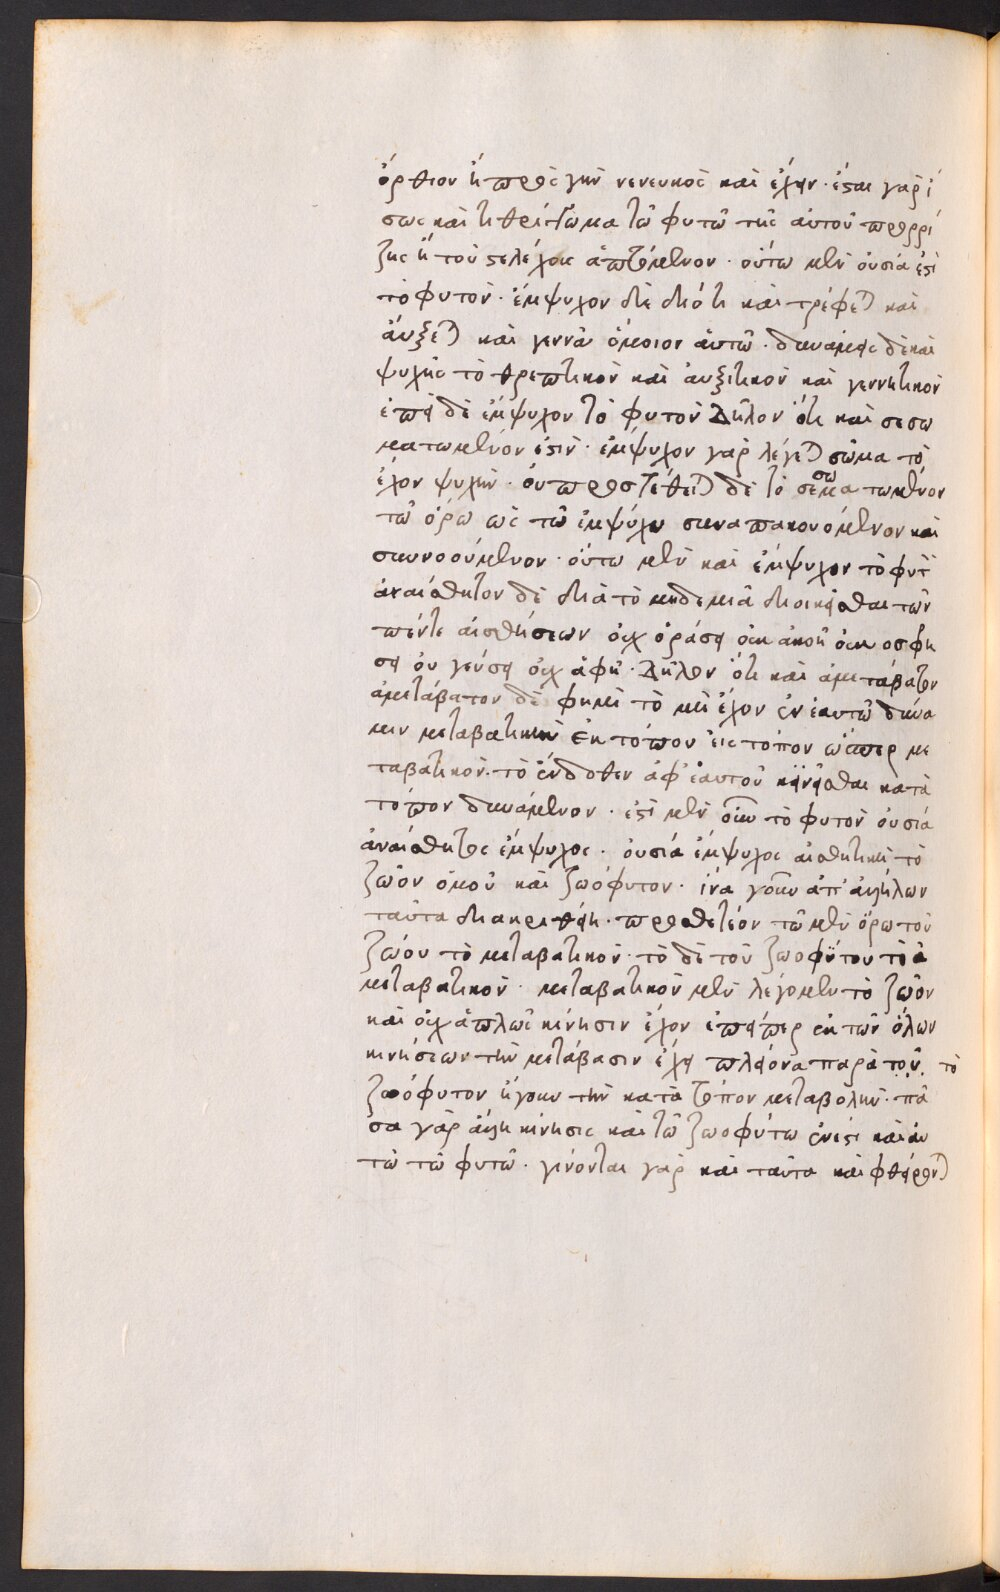 ὄρθιον ἢ πρὸς γῆν νενευκὸς καὶ ἔχειν· ἔσται γὰρ ἴ
σως καί τι θρέμμα τῶ φυτῶ τῆς αὐτοῦ προρρί
ζης ἢ τοῦ στελέχους ἁπτόμενον· οὕτω μὲν οὐσία ἐστὶ
τὸ φυτόν· ἔμψυχον δὲ διότι καὶ τρέφεται καὶ
ἄυξεται καὶ γεννᾶ ὅμοιον ἀυτῶ· δυνάμεις δὲ καὶ
ψυχῆς τὸ θρεπτικὸν καὶ ἀυξητικὸν καὶ γεννητικὸν
ἐπεὶ δὲ ἔμψυχον τὸ φυτὸν Δῆλον ὅτι καὶ σεσω
ματωμένόν ἐστιν· ἔμψυχον γὰρ λέγεται σῶμα τὸ
ἔχον ψυχήν· οὐ προστέθειται δὲ τὸ σεσωματωμένον
τῶ ὅρω ὡς τῶ ἐμψύχω συνυπακουόμενον καὶ
συννοούμενον· οὕτω μὲν καὶ ἔμψυχον τὸ φυτὸν
ἀναίσθητον δὲ διὰ τὸ μηδεμιᾶ διοικεῖσθαι τῶν
πέντε αἰσθήσεων οὐχ ὁράσει οὐκ ἀκοῆ οὐκ οσφρη
σει οὐ γεύσει οὐχ ἁφῆ· Δῆλον ὅτι καὶ ἀμετάβατον
ἀμετάβατον δὲ φημὶ τὸ μὴ ἔχον ἐν ἑαυτῶ δύνα
μιν μεταβατικὴν ἐκ τόπον εἰς τόπον ὥσπερ με
ταβατικὸν· τὸ ἔνδοθεν ἀφ' ἑαυτοῦ κινεῖσθαι κατὰ
τόπον δυνάμενον· ἐστὶ μὲν οὖν τὸ φυτὸν οὐσία
ἀναίσθητος ἔμψυχος· οὐσία ἔμψυχος αἰσθητικὴ τὸ
ζῶον ὁμοῦ καὶ ζωόφυτον· ἵνα γοῦν ἀπ' ἀλλήλων
ταῦτα διακριθείη· προσθετέον τῶ μὲν ὅρω τοῦ
ζώου τὸ μεταβατικόν· τὸ δὲ τοῦ ζωοφύτου τὸ ἀ
μεταβατικόν· μεταβατικὸν μὲν λέγομεν τὸ ζῶον
καὶ οὐχ ἁπλῶς κίνησιν ἔχον ἐπείπερ ἐκ τῶν ὅλων
κινήσεων τὴν μετάβασιν ἔχει πλείονα παρὰ τοῦ τὸ
ζωόφυτον ἤγουν τὴν κατὰ τόπον μεταβολήν· πᾶ
σα γὰρ ἄλλη κίνησις καὶ τῶ ζωοφύτω ἔνεστι καὶ ἀυ
τῶ τῶ φυτῶ· γίνονται γὰρ καὶ ταῦτα καὶ φθείρονται